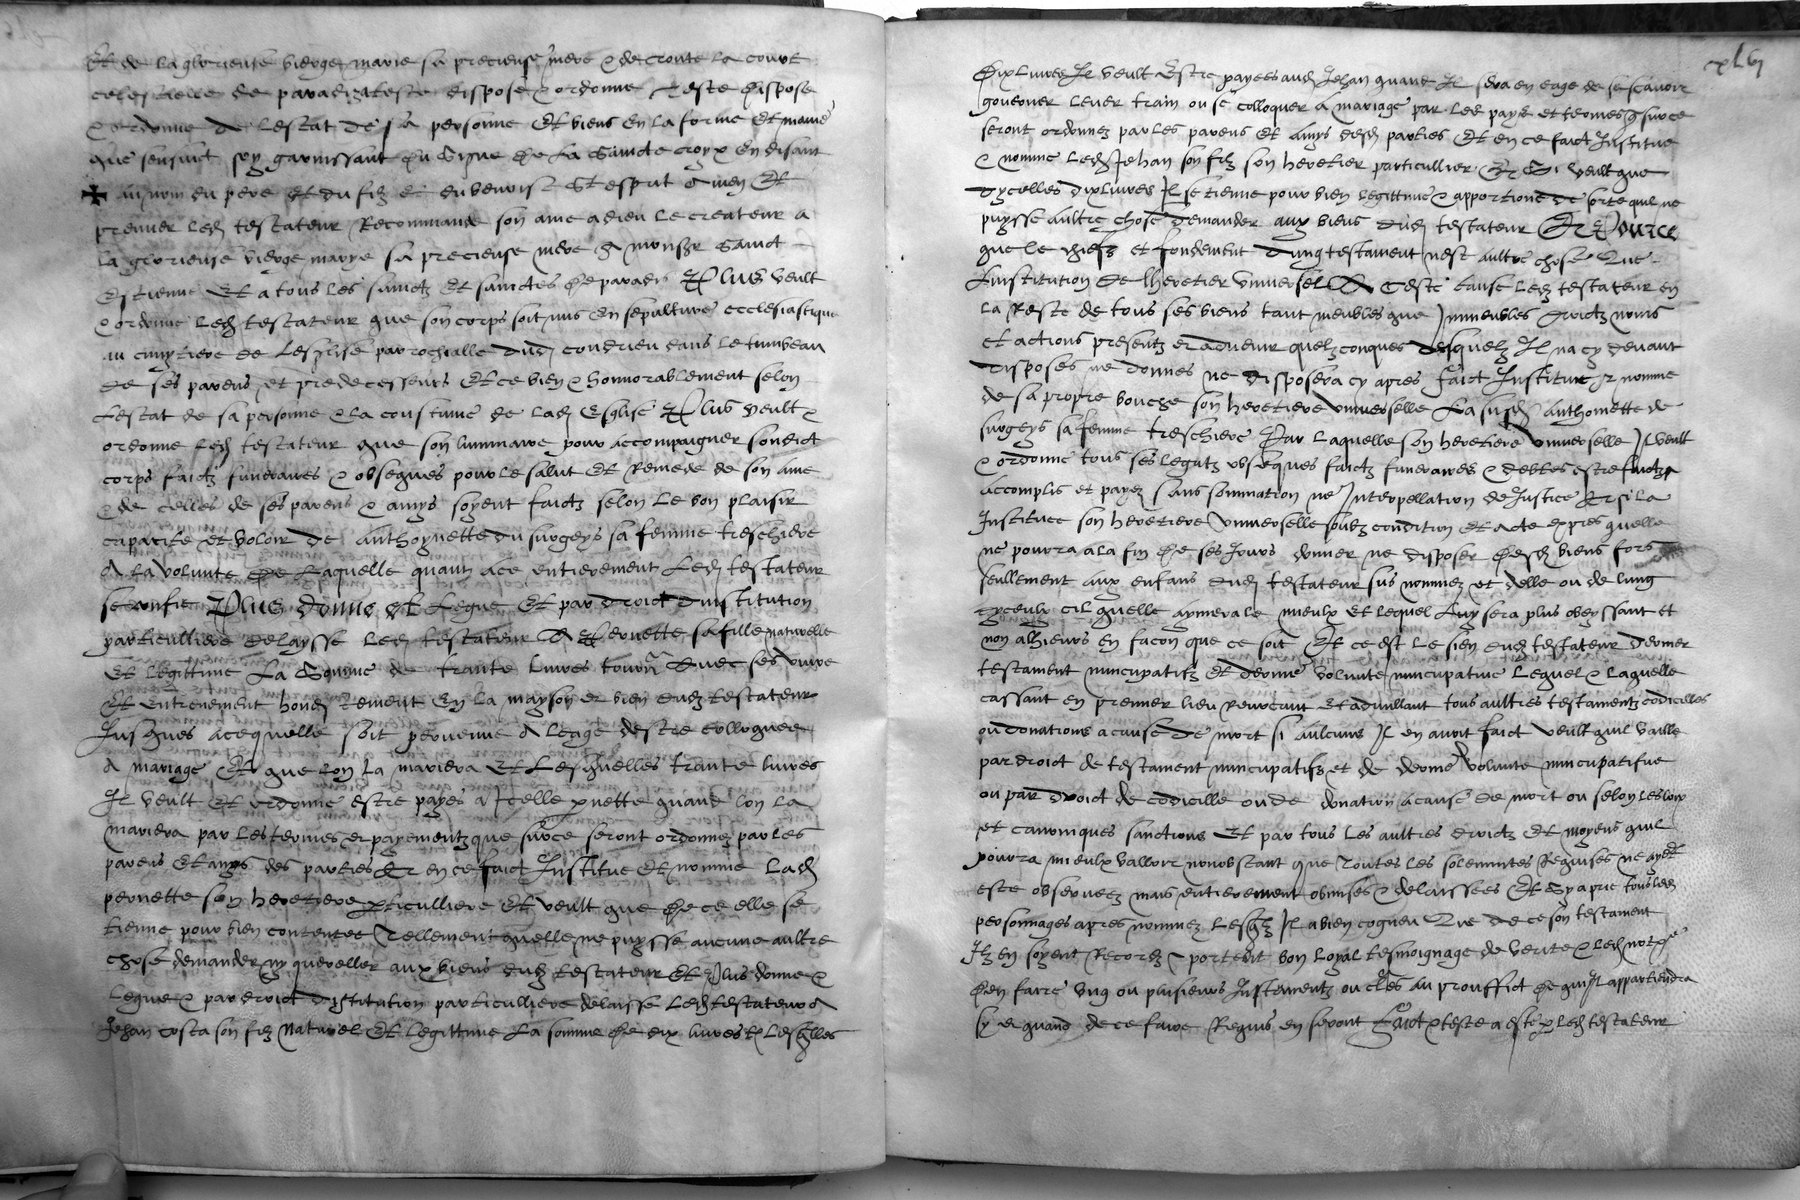 Et de la glorieuse vierge marie sa precieuse mere & de toute la court
celestielle de paradiz a teste dispose & ordonne teste dispose
& ordonne de lestat de sa personne Et biens en la forme Et maniere
que sensuict soy garnissant du Signe de La Saincte croyx En disant
✠ au nom du pere Et du filz et du benoist St esprit Amen Et
premier led testateur Recommande son ame a dieu le createur a
la glorieuse vierge marye sa precieuse mere A monsgr Sainct
Estienne Et a tous les sainctz Et sainctes de paradis Plus veult
& ordonne led testateur que son corps soit mis En sepulture ecclesiastique
au cimytiere de Leglise parrochialle dud condrieu dans le tumbeau
de ses parens et predecesseurs Et ce bien & honnorablement selon
Lestat de sa personne & la coustume de lad Esglise Plus veult &
ordonne led testateur que son luminaire pour accompaigner sondict
corps faictz funeraires & obseques pour le salut Et Remede de son ame
& de celles de ses parens & amys soyent faictz selon le bon plaisir
capacite et voloir de anthoynette du surgeys sa femme treschiere
A la volunte de Laquelle quant a ce entierement Led testateur
se confie Plus donne et Legue Et par droict dinstitution
particulliere delaysse led testateur A pernette sa fille naturelle
Et legittime La Somme de trante livres tourn Avec ses vivre
Et entretenement honnestement En la mayson et bien dud testateur
Jusques a ce quelle soit parvenue A leage destre colloquee
A mariage Et que lon la mariera Et Lesquelles trante livres
Il veult Et ordonne estre payes a Icelle pnette quand lon la
mariera par les termes et payementz que sur ce seront ordonnez par les
parens Et amys des parties Et en ce faict Institue Et nomme Lad
pernette son heretiere particulliere Et veult que de ce elle se
tienne pour bien contentee Tellement quelle ne puysse aucune aultre
chose demander ny quereller aux biens dud testateur Et Plus donne &
Legue & par droict dinstitution particulliere delaisse Led testateur a
Jehan costa son filz Naturel Et legittime La somme de dix livres tz Lesqlles
xlvj
Dix livres Il veult Estre payees aud Jehan quant Il sera en eage de se scavoir
gouverner lever train ou se colloquer a mariage par les payes et termes q sur ce
seront ordonnez par les parens Et amys desd parties Et en ce faict Institue
& nomme Led Jehan son filz son heretier particullier Et Si veult que
dycelles dix livres Il se tienne pour bien Legittime & apportione de sorte quil ne
puysse aultre chose demander aux biens dud testateur Et Pource
que le chiefz et fondement dung testament nest aultre chose Que
Linstitution de lheretier universel A Ceste cause Led testateur en
la Reste de tous ses biens tant meubles que Immeubles droictz noms
et actions presentz et advenir quelzconques desquelz Il na cy devant
disposes ne donnes ne disposera cy apres faict Institue et nomme
de sa propre bouche son heretiere universelle La susd anthoinette de
surgeys sa femme treschiere Par laquelle son heretiere universelle Il veult
& ordonne tous ses legatz obseques faictz funeraires & debtes estre faictz
Accomplis et payez sans sommation ne Interpellation de Justice Et si la
Instituee son heretiere universelle soubz condition Et acte expres quelle
ne pourra a la fin de ses Jours donner ne disposer desd biens fors
seullement aux enfans dud testateur sus nommez et delle ou de lung
dyceulx cil quelle aymera le mieulx Et lequel Luy sera plus obeyssant et
non alhieurs En facon que ce soit Et ce est Le sien dud testateur dernier
testament nuncupatifz Et derniere volunte nuncupative Lequel & Laquelle
cassant en premier lieu Revocant Et adnullant tous aultres testamentz codicilles
ou donations a cause de mort si aulcuns Il en avoit faict veult quil vaille
par droict de testament nuncupatifz et de derniere volunte nuncupatifve
ou par droict de codicille ou de donation a cause de mort ou selon les loix
et canoniques sanctions Et par tous les aultres droictz Et moyens quil
pourra mieulx valloir nonobstant que Toutes les solemnites Requises ne ayent
este observeez mais entierement obmises & delaissees Et Sy a prie tous les
personnages apres nommez Lesqlz Il a bien cogneu Que de ce son testament
Ilz en soyent Recordz & portent bon Loyal tesmoignage de verite & led notre
den faire ung ou plusieurs Instrumentz ou clES au prouffict de qui Il appartiendra
sy et quand de ce faire Requis en seront Faict & teste a este p led testateur